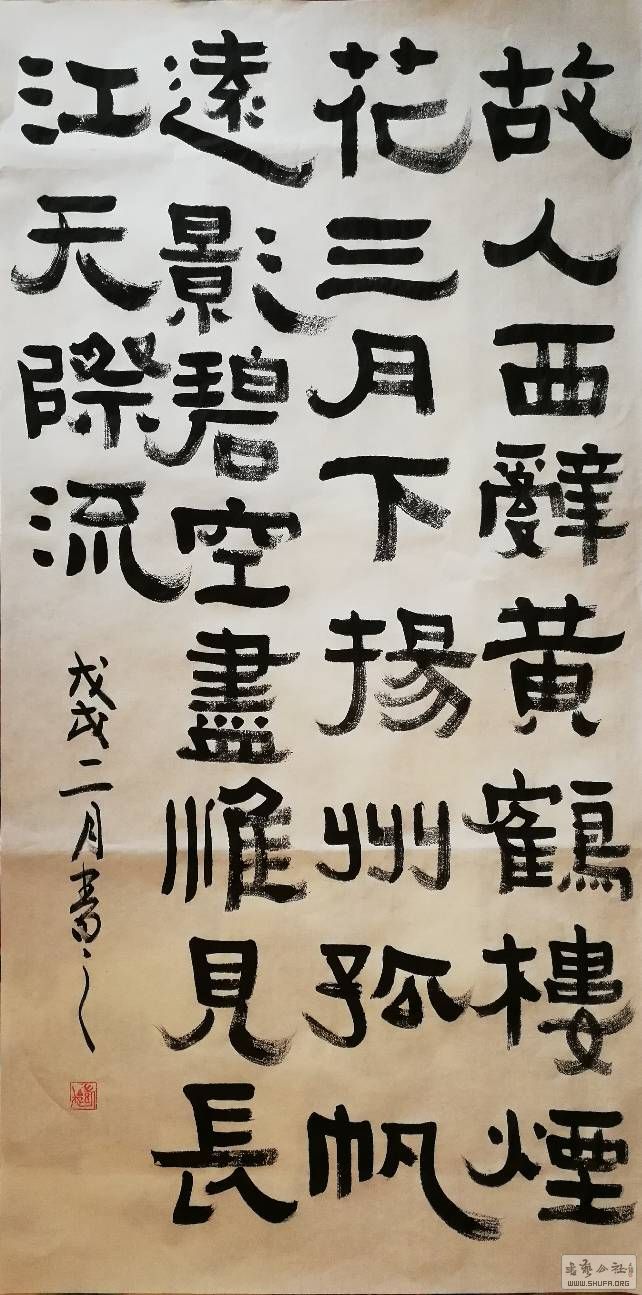 故人西辭黄鶴樓煙
花三月下揚州孤帆
遠影碧空盡惟見長
江天際流
戊戌二月書之
WWW.SHUFA.ORG